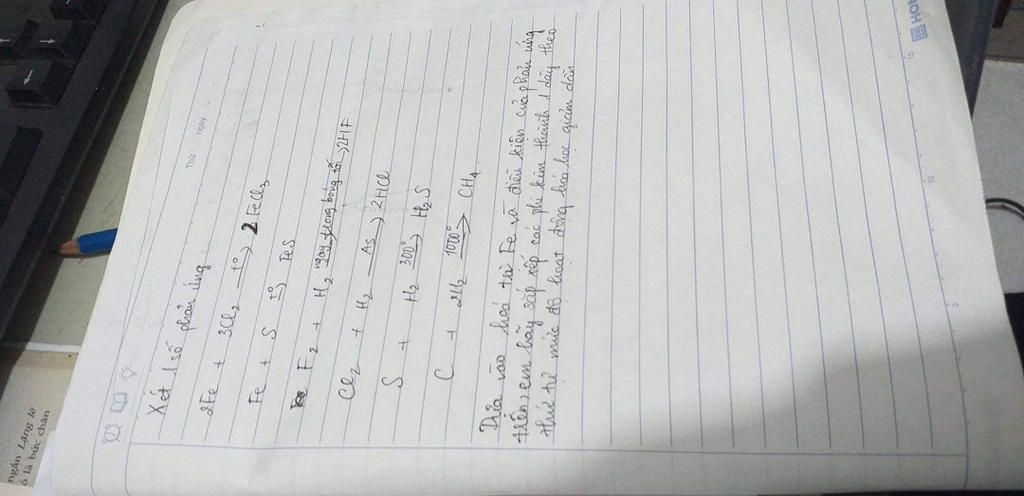 Thứ ngày
Xét 1 số phản ứng :
2Fe + 3Cl2 t°→ 2FeCl3
Fe + S t°→ FeS
F2 + H2 ngay trong bóng tối→ 2HF
Cl2 + H2 As→ 2HCl
S + H2 300°→ H2S
C + 2H2 1000°→ CH4
Dựa vào hoá trị Fe và điều kiện của phản ứng
trên, em hãy sắp xếp các phi kim thành 1 dãy theo
thứ tự mức độ hoạt động hoá học giảm dần
ngán Lặng lẽ
ó là bức chân
5
10
15
HON